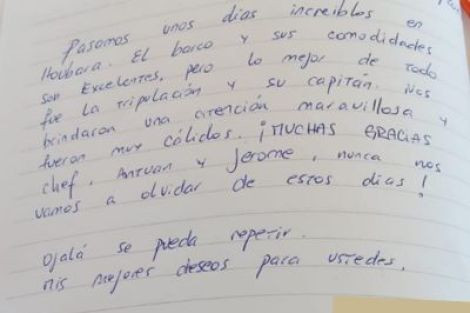 Pasamos unos días increíbles en
Houbara. El barco y sus comodidades
son Excelentes, pero lo mejor de todo
fue la tripulación y su capitán. Nos
brindaron una atención maravillosa y
fueron muy cálidos. ¡MUCHAS GRACIAS
chef, Antuan y Jerome, nunca nos
vamos a olvidar de estos días!
Ojalá se pueda repetir.
Mis mejores deseos para ustedes.